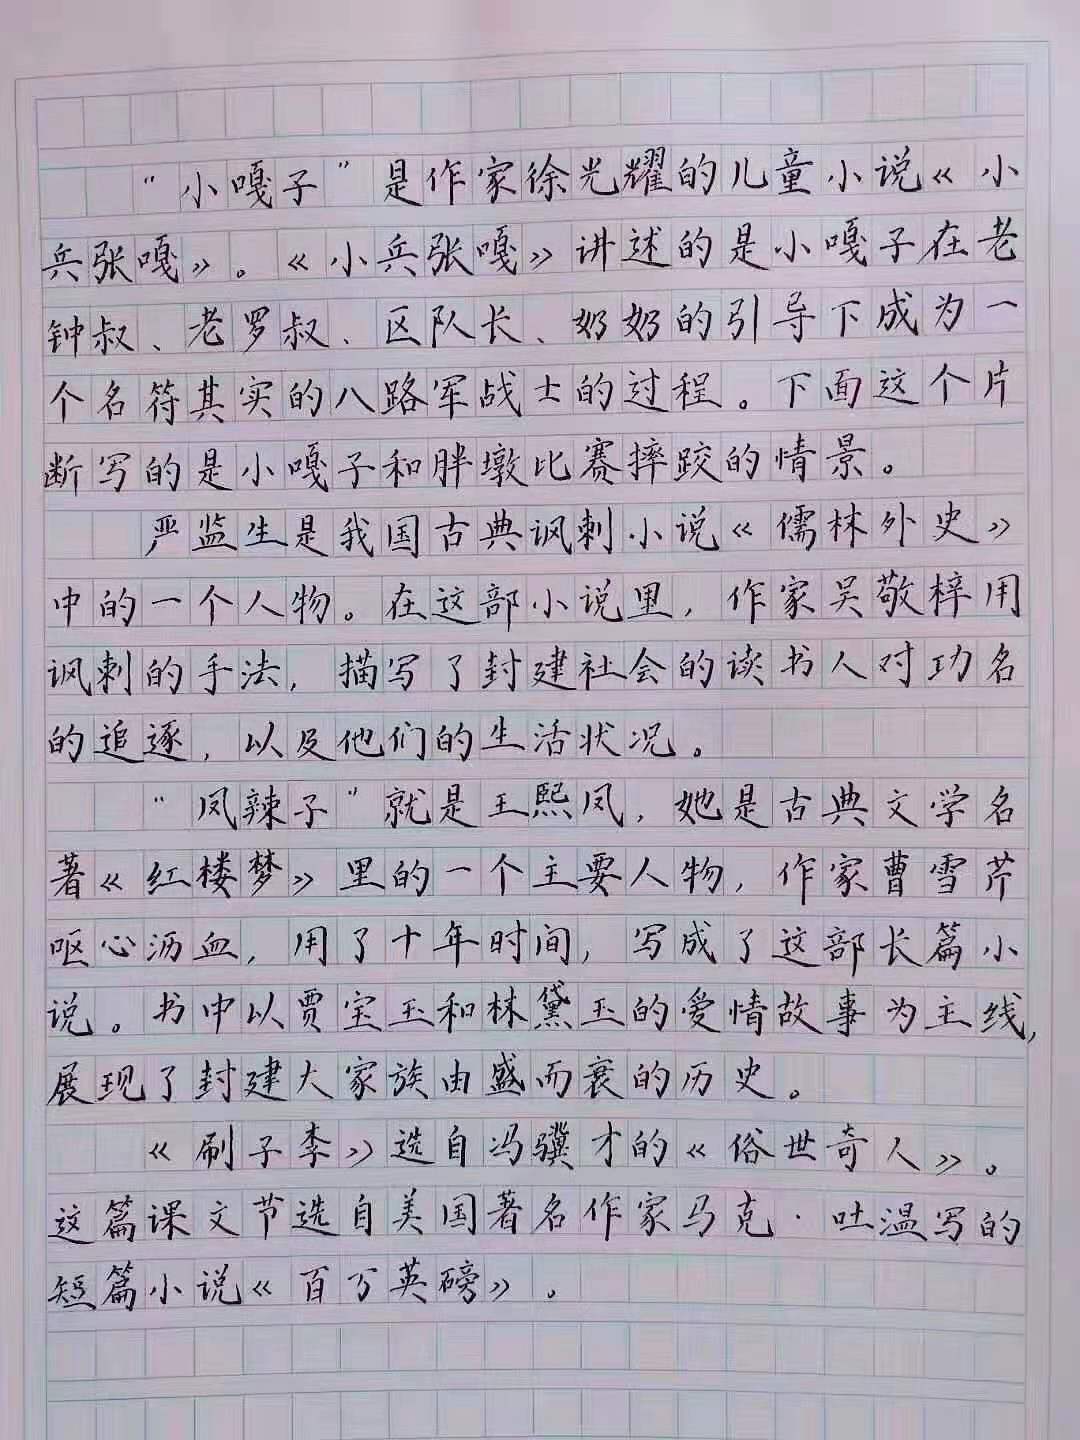 “小嘎子”是作家徐光耀的儿童小说《小
兵张嘎》。《小兵张嘎》讲述的是小嘎子在老
钟叔、老罗叔、区队长、奶奶的引导下成为一
个名符其实的八路军战士的过程。下面这个片
断写的是小嘎子和胖墩比赛摔跤的情景。
严监生是我国古典讽刺小说《儒林外史》
中的一个人物。在这部小说里，作家吴敬梓用
讽刺的手法，描写了封建社会的读书人对功名
的追逐，以及他们的生活状况。
“凤辣子”就是王熙凤，她是古典文学名
著《红楼梦》里的一个主要人物，作家曹雪芹
呕心沥血，用了十年时间，写成了这部长篇小
说。书中以贾宝玉和林黛玉的爱情故事为主线，
展现了封建大家族由盛而衰的历史。
《刷子李》选自冯骥才的《俗世奇人》。
这篇课文节选自美国著名作家马克·吐温写的
短篇小说《百万英磅》。